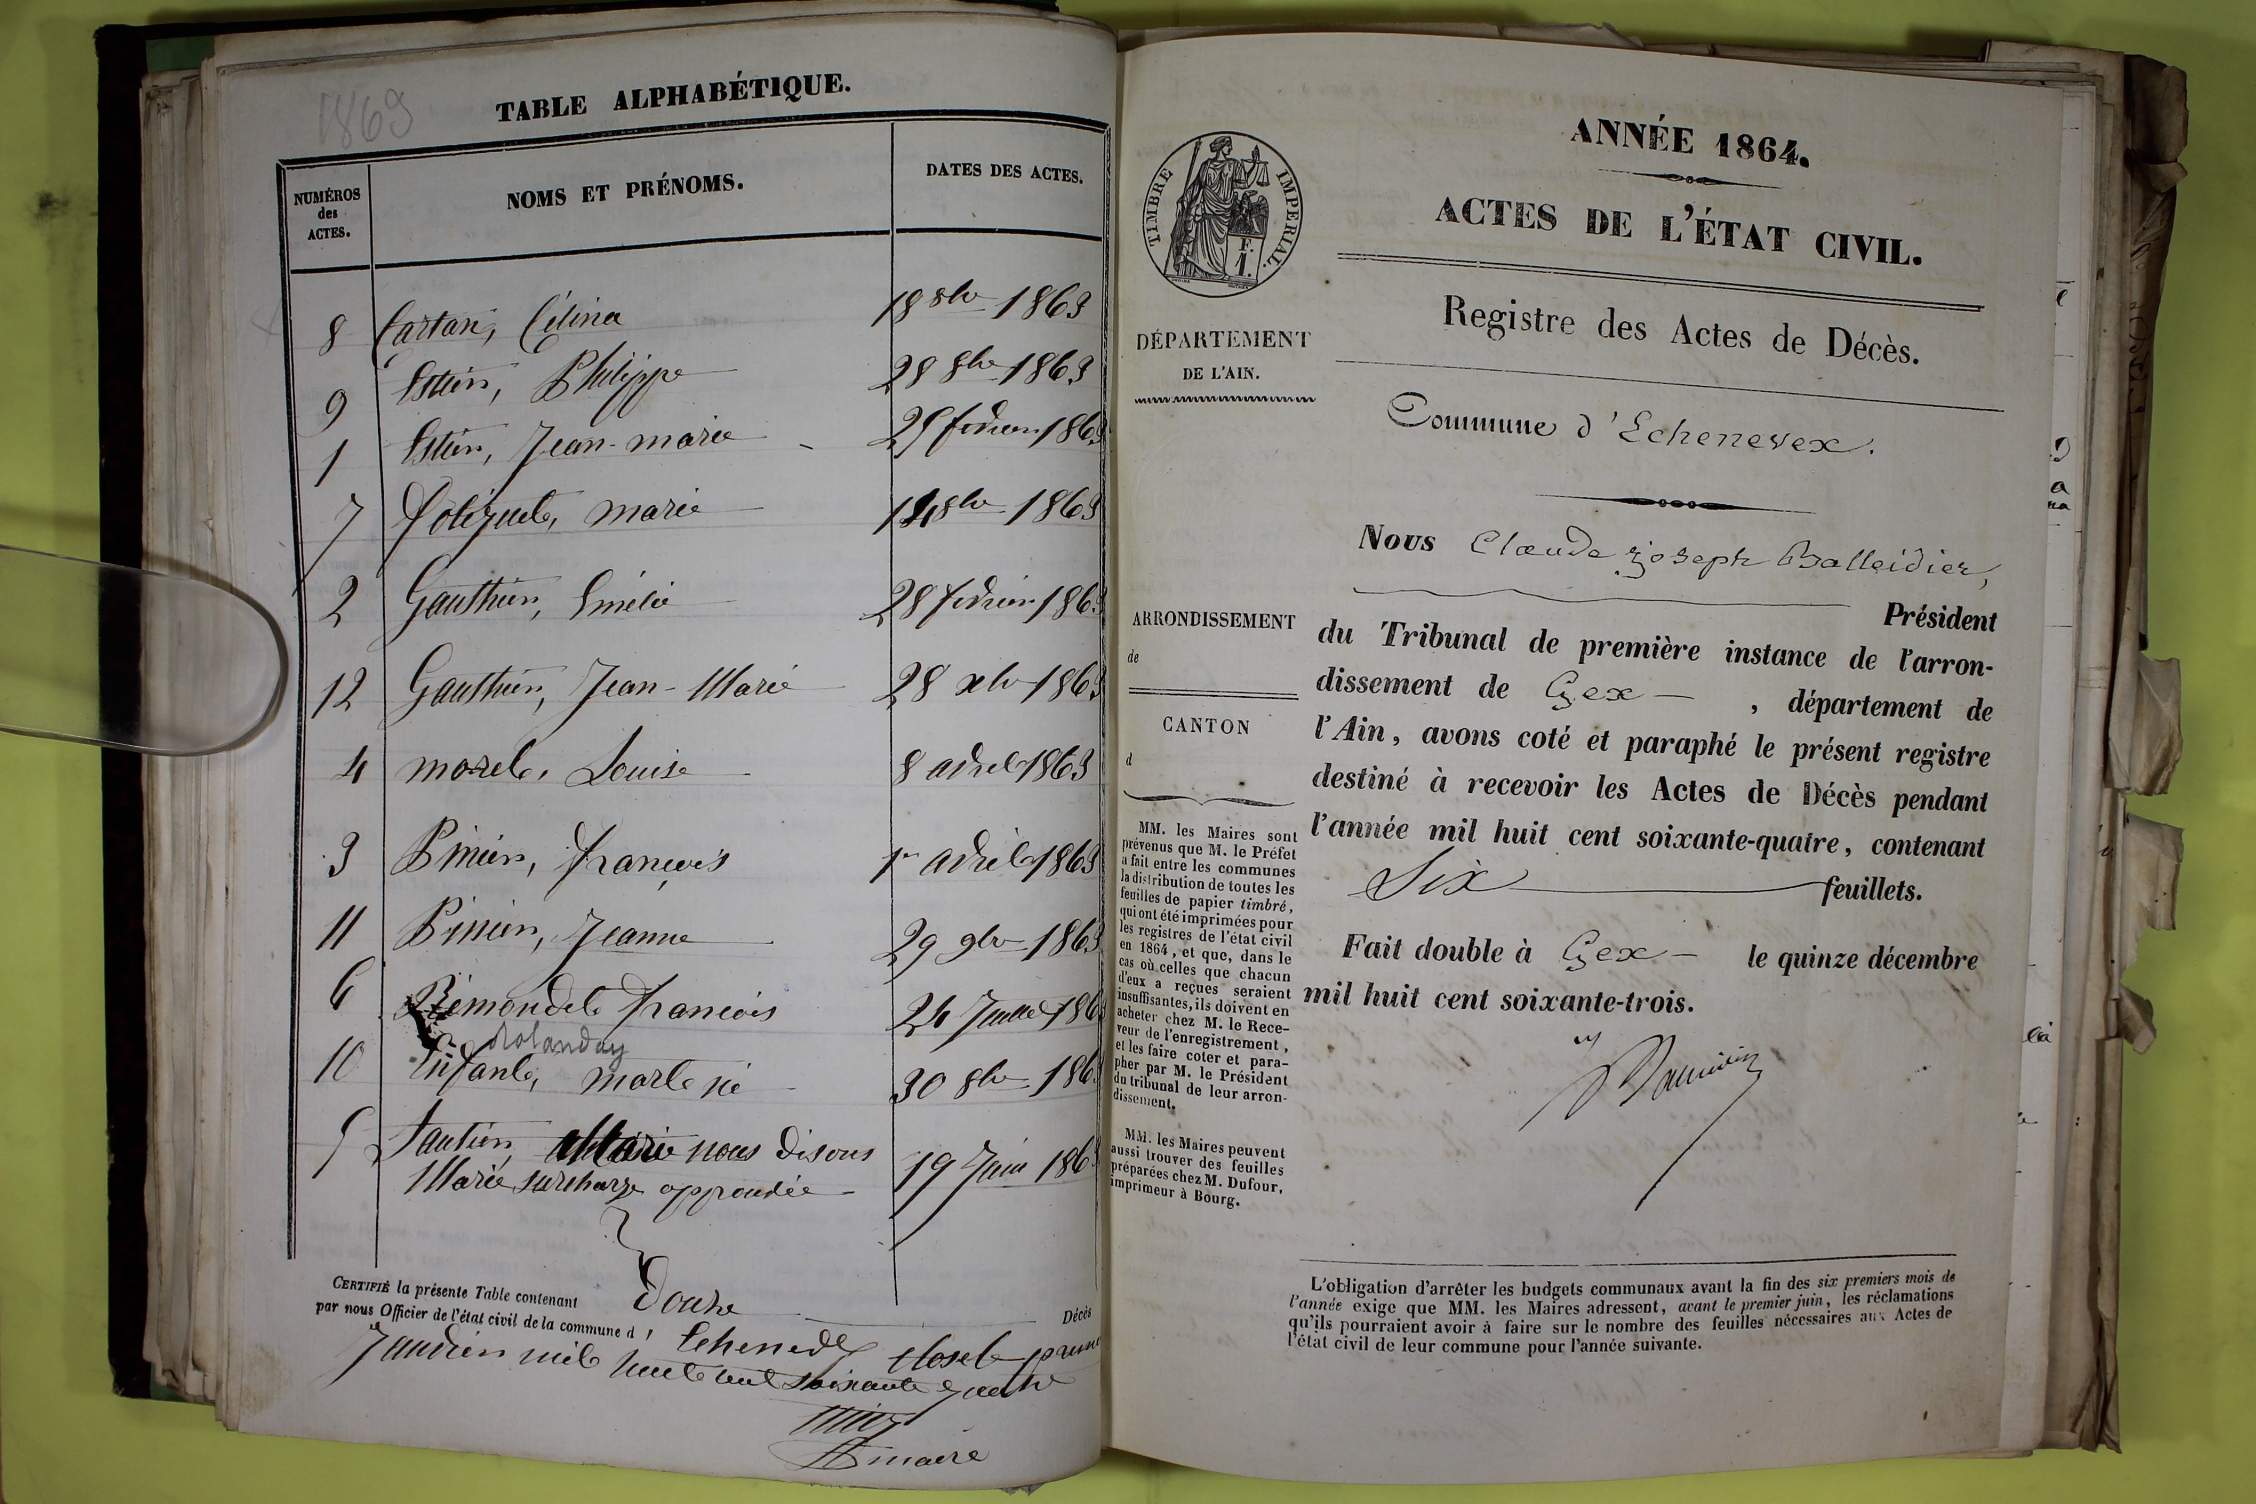 1863
TABLE ALPHABÉTIQUE.
NUMÉROS
des
ACTES.
NOMS ET PRÉNOMS.
DATES DES ACTES.
8 Cartan, Célina 18 8bre 1863
9 Estier, Philippe 28 8bre 1863
1 Estier, Jean-marie 25 fevrier 1863
7 marie 14 8bre 1863
2 Gauthier, Emélie 28 fevrier 1863
12 Gauthier, Jean-Marie 28 xbre 1863
4 morel, Louise 8 avril 1863
3 Pinier, françois 1er avril 1863
11 Pinier, Jeanne 29 9bre 1863
6 Rémondet françois 24 Juillet 1863
Rolanday
10 Enfant, mort né 30 8bre 1863
5 Fautier, Marie nous disons
Marie surcharge approuvée 19 Juin 1863
CERTIFIÉ la présente Table contenant Douze Décès
par nous Officier de l'état civil de la commune d' Echenevex close le premier
Janvier mil huit cent soixante quatre
maire
TIMBRE IMPERIAL.
F.
1.
DÉPARTEMENT
DE L'AIN.
ARRONDISSEMENT
de
CANTON
d
MM. les Maires sont
prévenus que M. le Préfet
a fait entre les communes
la distribution de toutes les
feuilles de papier timbré,
qui ont été imprimées pour
les registres de l'état civil
en 1864, et que, dans le
cas où celles que chacun
d'eux a reçues seraient
insuffisantes, ils doivent en
acheter chez M. le Rece-
veur de l'enregistrement,
et les faire coter et para-
pher par M. le Président
du tribunal de leur arron-
dissement.
MM. les Maires peuvent
aussi trouver des feuilles
préparées chez M. Dufour,
imprimeur à Bourg.
ANNÉE 1864.
ACTES DE L'ÉTAT CIVIL.
Registre des Actes de Décès.
Commune d'Echenevex.
Nous Claude joseph Balleidier,
Président
du Tribunal de première instance de l'arron-
dissement de Gex , département de
l'Ain, avons coté et paraphé le présent registre
destiné à recevoir les Actes de Décès pendant
l'année mil huit cent soixante-quatre, contenant
Six feuillets.
Fait double à Gex le quinze décembre
mil huit cent soixante-trois.
L'obligation d'arrêter les budgets communaux avant la fin des six premiers mois de
l'année exige que MM. les Maires adressent, avant le premier juin, les réclamations
qu'ils pourraient avoir à faire sur le nombre des feuilles nécessaires aux Actes de
l'état civil de leur commune pour l'année suivante.